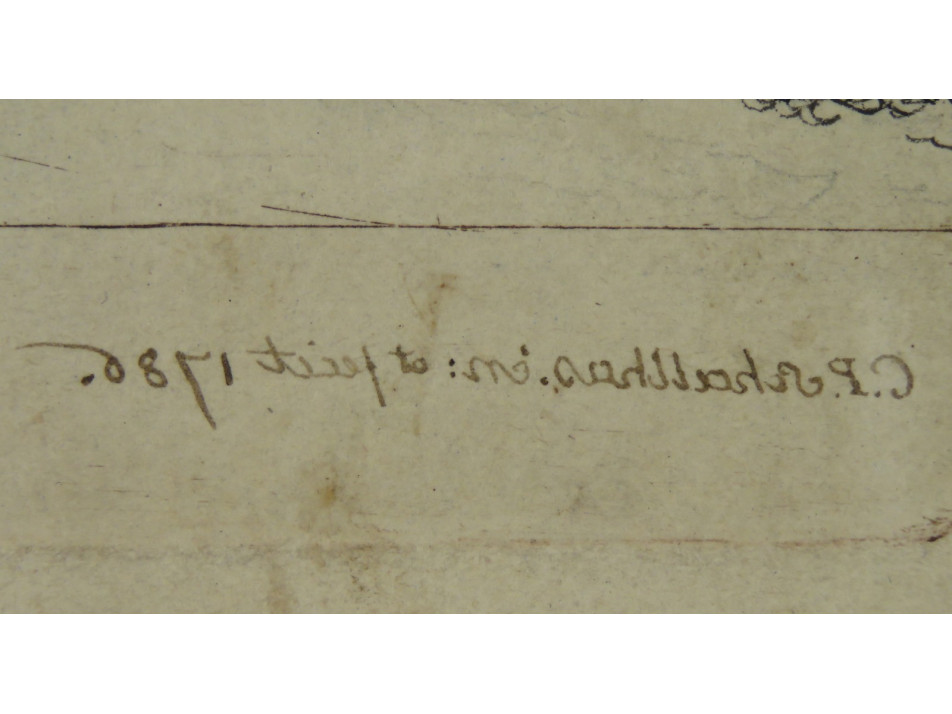 C.P. schallhas. in: et fecit 1786.